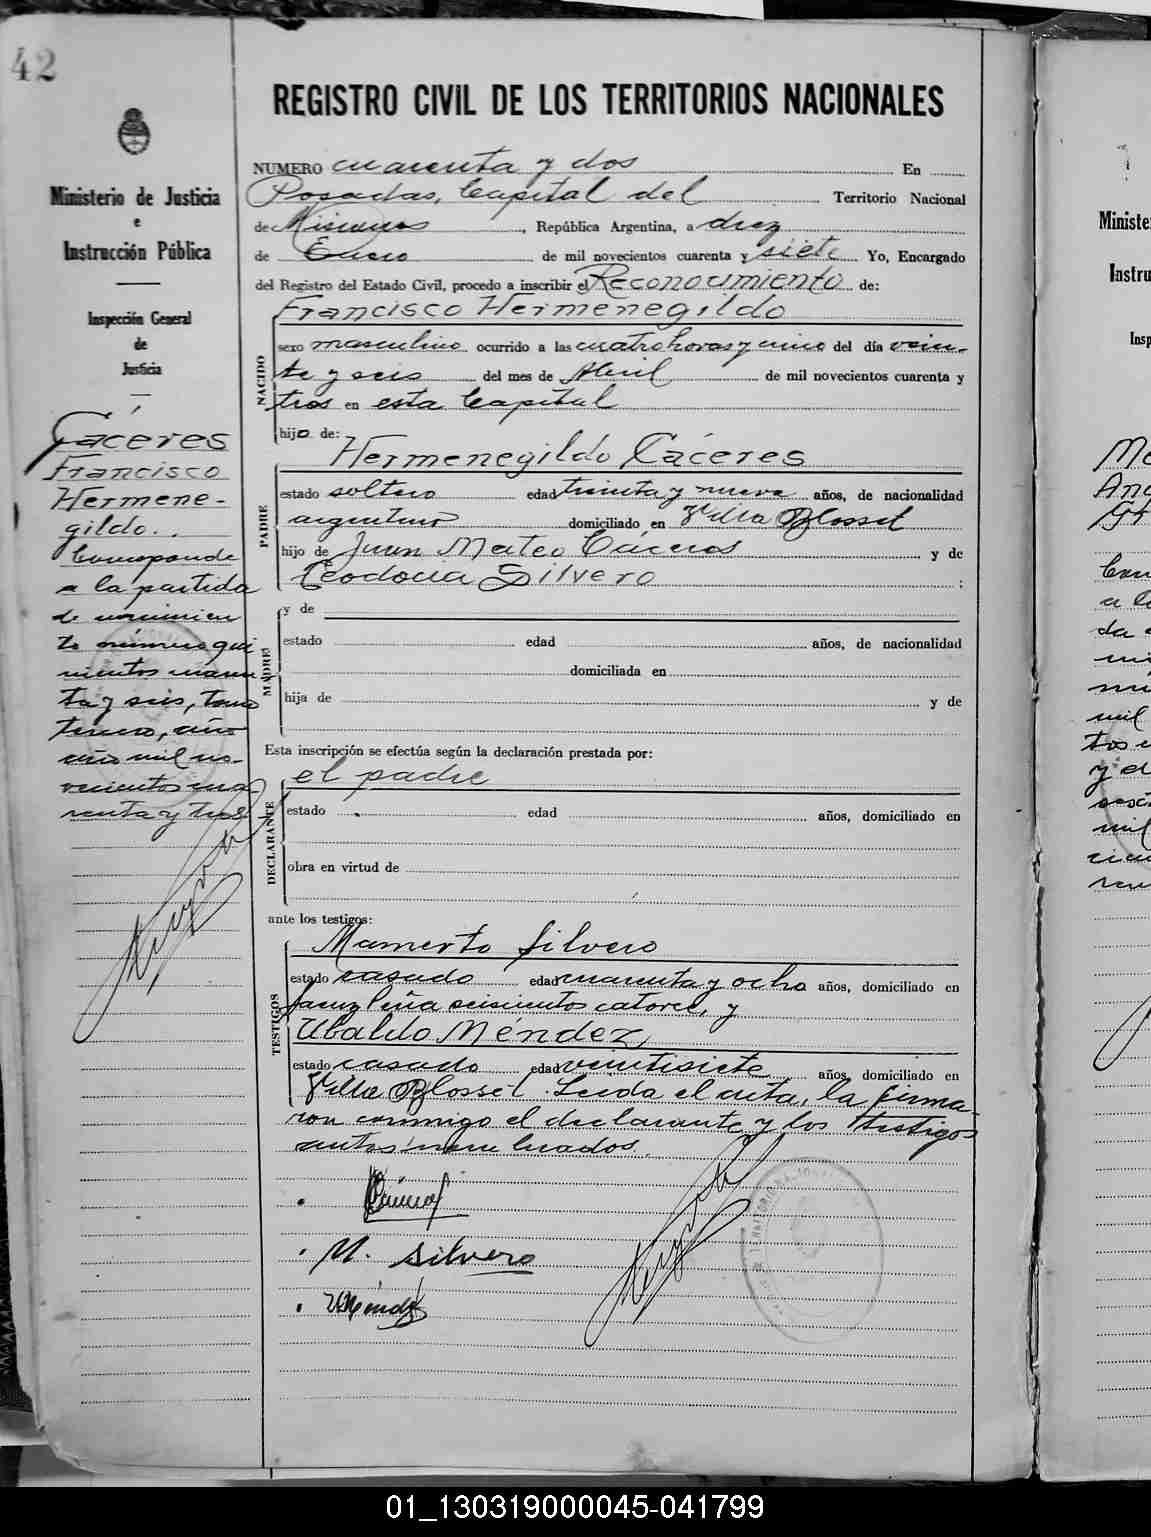 42
Ministerio de Justicia
e
Instrucción Pública
Inspección General
de
Justicia
Cáceres
Francisco
Hermene-
gildo.
Corresponde
a la partida
de nacimien
to número qui
nientos
ta y seis, tomo
tercero, año
año mil no-
vecientos cua
renta y tres
REGISTRO CIVIL DE LOS TERRITORIOS NACIONALES
NUMERO cuarenta y dos En
Posadas, Capital del Territorio Nacional
de Misiones, República Argentina, a diez
de Enero de mil novecientos cuarenta y siete Yo, Encargado
del Registro del Estado Civil, procedo a inscribir el Reconocimiento de:
Francisco Hermenegildo
NACIDO
sexo masculino ocurrido a las cuatro horas y cinco del día vein-
te y seis del mes de Abril de mil novecientos cuarenta y
tres en esta Capital
hijo de:
Hermenegildo Cáceres
PADRE
estado soltero edad treinta y nueve años, de nacionalidad
argentino domiciliado en Villa Blosset
hijo de Juan Mateo Cáceres y de
Teodocia Silvero ;
MADRE
y de
estado edad años, de nacionalidad
domiciliada en
hija de y de
Esta inscripción se efectúa según la declaración prestada por:
el padre
DECLARANTE
estado edad años, domiciliado en
obra en virtud de
ante los testigos:
Mamerto Silvero
TESTIGOS
estado casado edad cuarenta y ocho años, domiciliado en
Saenz Peña seiscientos catorce, y
Ubaldo Méndez,
estado casado edad veintisiete años, domiciliado en
Villa Blosset. Leida el acta, la firma-
ron conmigo el declarante y los testigos
antes mencionados.
M. Silvero
UMéndez
01_130319000045-041799
Ministe
Instru
Insp